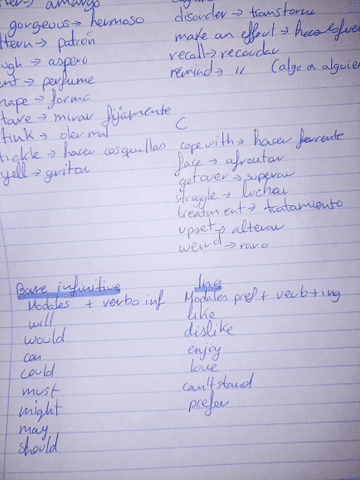 amargo
gorgeous → hermoso
patrón
→ aspero
→ perfume
→ forma
→ mirar fijamente
→ oler mal
tickle → hacer cosquillas
yell → gritar
disorder → transtorno
make an effort →
recall → recordar
remind → " (algo a alguien
C
cope with → hacer
face → afrontar
get over → superar
struggle → luchar
treatment → tratamiento
upset → alterar
weird → raro
Bare infinitive
Modales + verbo inf
will
would
can
could
must
might
may
should
Ing
Modales pref + verb + ing
like
dislike
enjoy
love
can't stand
prefer